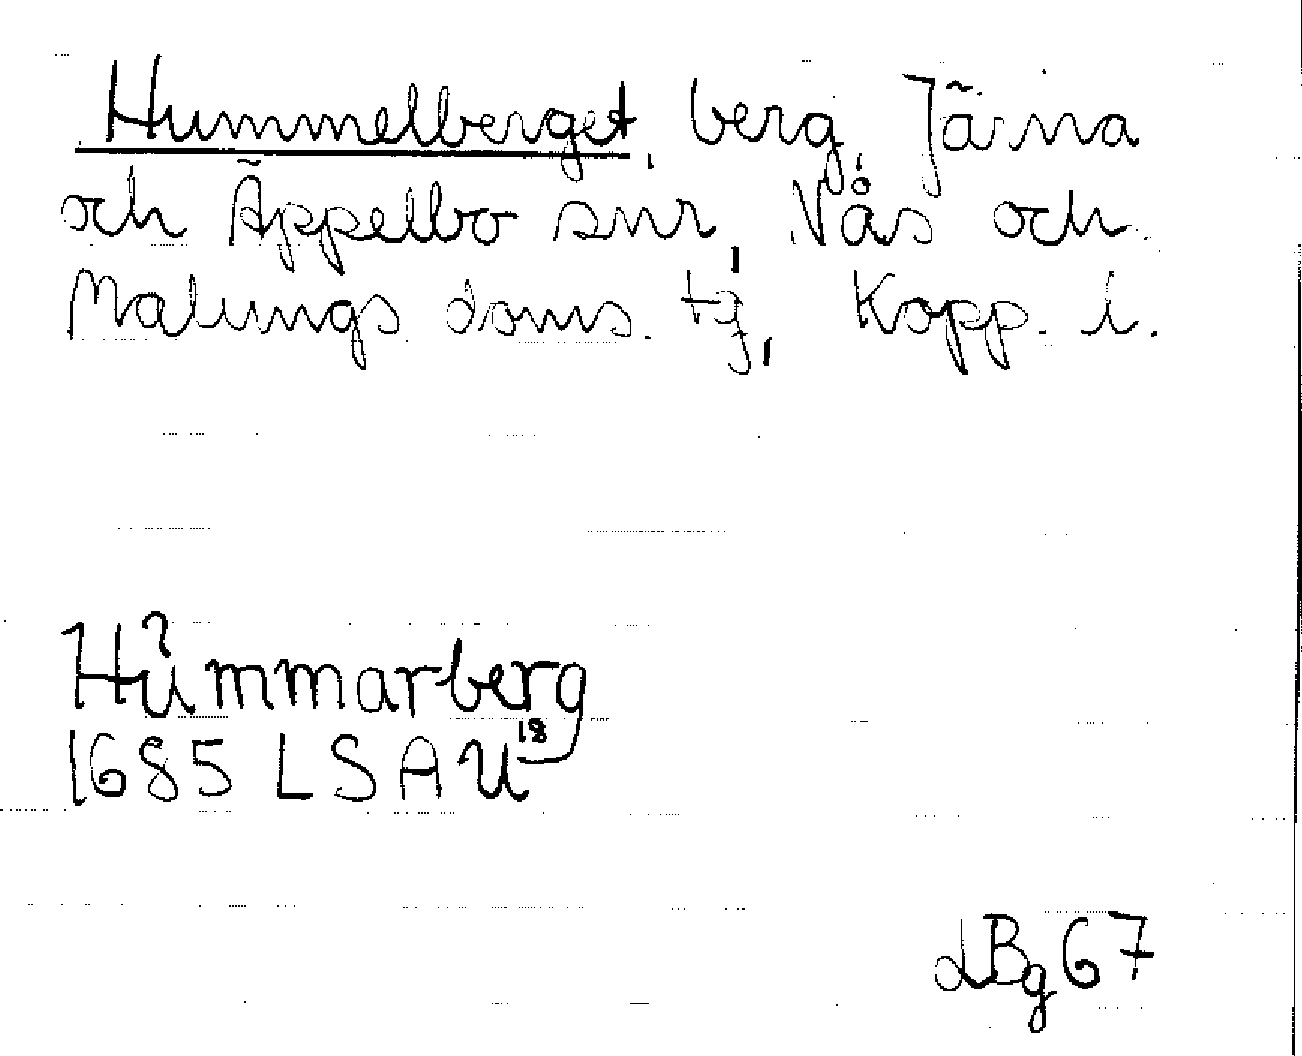 Hummelberget, berg, Järna
och Äppelbo snr, Nås och
Malungs doms. tg, Kopp. l.
Hůmmarberg
1685 LSA U18
LBg 67